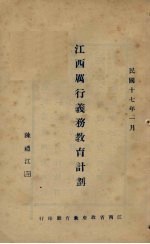 民國十七年一月
江西厲行義務教育計劃
陳禮江
江西省政府教育廳印行